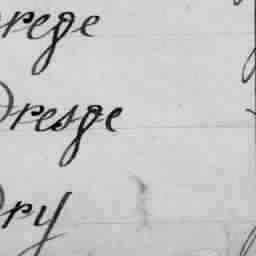 Drege
Dresge
Dry